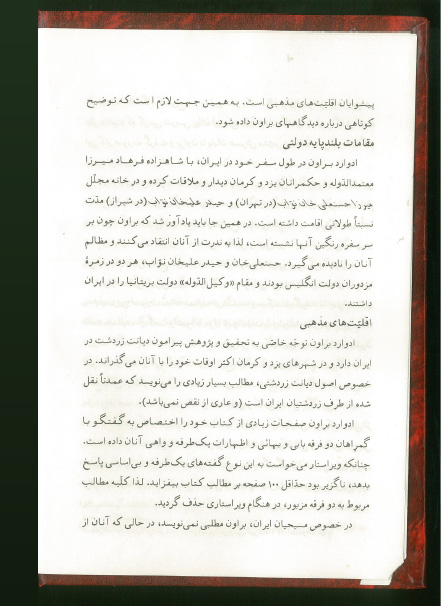 پیشوایان اقلیّت‌های مذهبی است. به همین جهت لازم است که توضیح
کوتاهی درباره دیدگاههای براون داده شود.
مقامات بلندپایه دولتی
ادوارد براون در طول سفر خود در ایران، با شاهزاده فرهاد میرزا
معتمدالدّوله و حکمرانان یزد و کرمان دیدار و ملاقات کرده و در خانه مجلّل
حسنعلی خان نوّاب (در تهران) و حیدر علیخان نوّاب (در شیراز) مدّت
نسبتاً طولانی اقامت داشته است. در همین جا باید یادآور شد که براون چون بر
سر سفره رنگین آنها نشسته است، لذا به ندرت از آنان انتقاد می‌کنند و مظالم
آنان را نادیده می‌گیرد. حسنعلی‌خان و حیدر علیخان نوّاب، هر دو در زمرهٔ
مزدوران دولت انگلیس بودند و مقام «وکیل‌الدّوله» دولت بریتانیا را در ایران
داشتند.
اقلیّت‌های مذهبی
ادوارد براون توجّه خاصّی به تحقیق و پژوهش پیرامون دیانت زردشت در
ایران دارد و در شهرهای یزد و کرمان اکثر اوقات خود را با آنان می‌گذراند. در
خصوص اصول دیانت زردشتی، مطالب بسیار زیادی را می‌نویسد که عمدتاً نقل
شده از طرف زردشتیان ایران است (و عاری از نقص نمی‌باشد).
ادوارد براون صفحات زیادی از کتاب خود را اختصاص به گفتگو با
گمراهان دو فرقه بابی و بهائی و اظهارات یک‌طرفه و واهی آنان داده است.
چنانکه ویراستار می‌خواست به این نوع گفته‌های یک‌طرفه و بی‌اساسی پاسخ
بدهد، ناگزیر بود حدّاقل ۱۰۰ صفحه بر مطالب کتاب بیفزاید. لذا کلّیه مطالب
مربوط به دو فرقه مزبور، در هنگام ویراستاری حذف گردید.
در خصوص مسیحیان ایران، براون مطلبی نمی‌نویسد، در حالی که آنان از